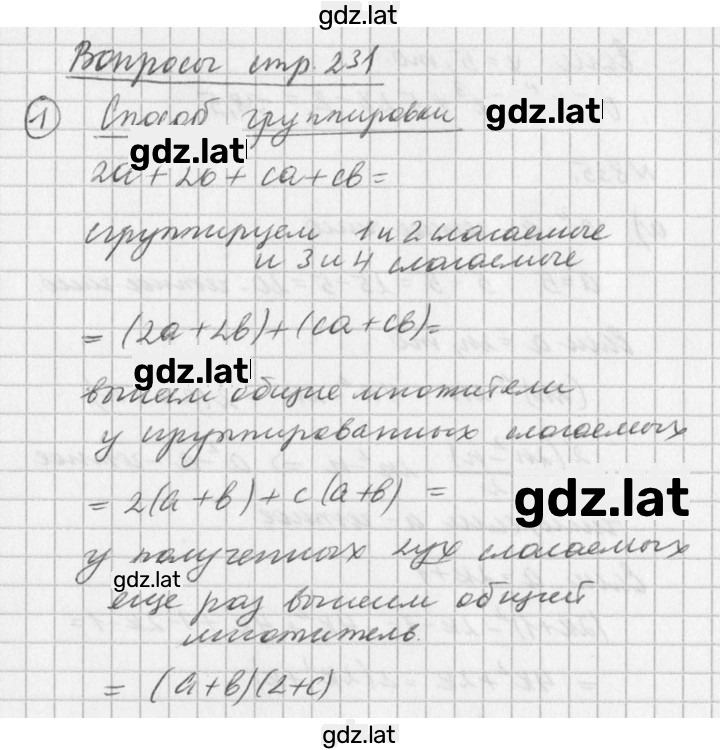 gdz.lat
Вопросы стр. 231
1 Способ группировки
gdz.lat
gdz.lat
2a + 2b + ca + cb =
группируем 1 и 2 слагаемые
и 3 и 4 слагаемые
= (2a + 2b) + (ca + cb) =
gdz.lat
вынесем общие множители
у группированных слагаемых
= 2(a + b) + c(a + b) =
gdz.lat
у полученных 2ух слагаемых
gdz.lat
еще раз вынесем общий
множитель.
= (a + b)(2 + c)
gdz.lat